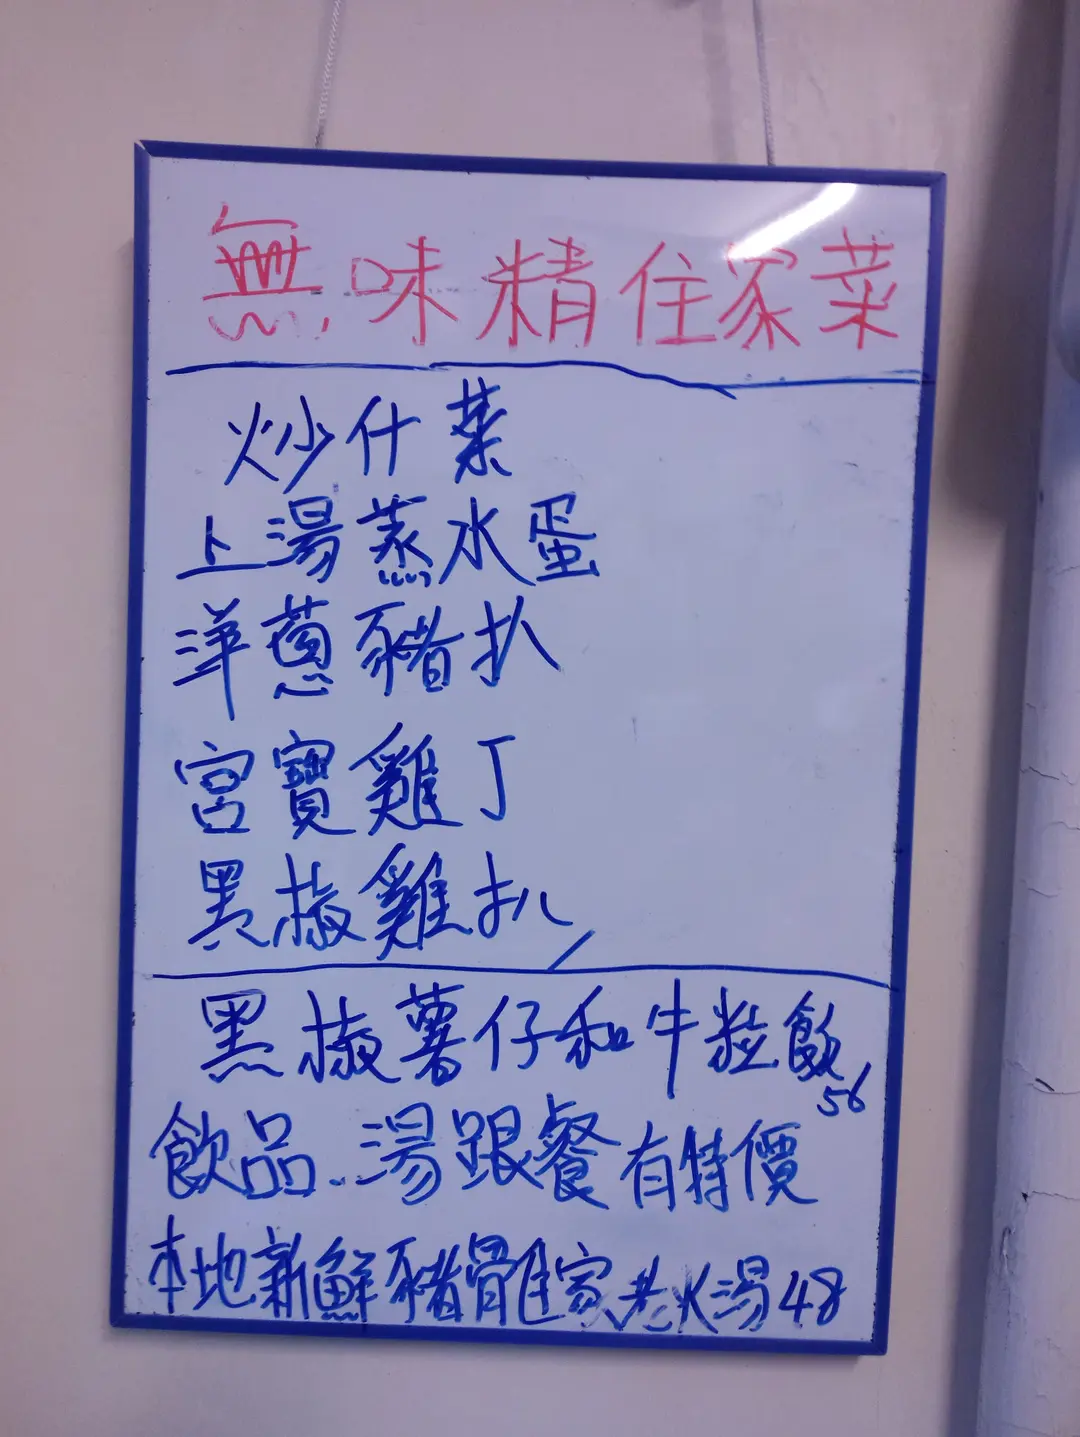 無味精住家菜
炒什菜
上湯蒸水蛋
洋蔥豬扒
宮寶雞丁
黑椒雞扒
黑椒薯仔和牛粒飯
56
飲品..湯跟餐有特價
本地新鮮豬骨住家老火湯48